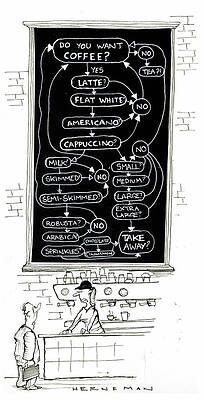 DO YOU WANT
COFFEE?
NO
YES
TEA?!
LATTE?
FLAT WHITE
NO
AMERICANO?
CAPPUCCINO?
MILK?
NO
SMALL?
SKIMMED?
NO
MEDIUM?
SEMI-SKIMMED?
LARGE?
EXTRA
LARGE?
ROBUSTA?
NO
ARABICA
CHOCOLATE
TAKE
AWAY?
SPRINKLES?
CINNAMON
HERNEMAN